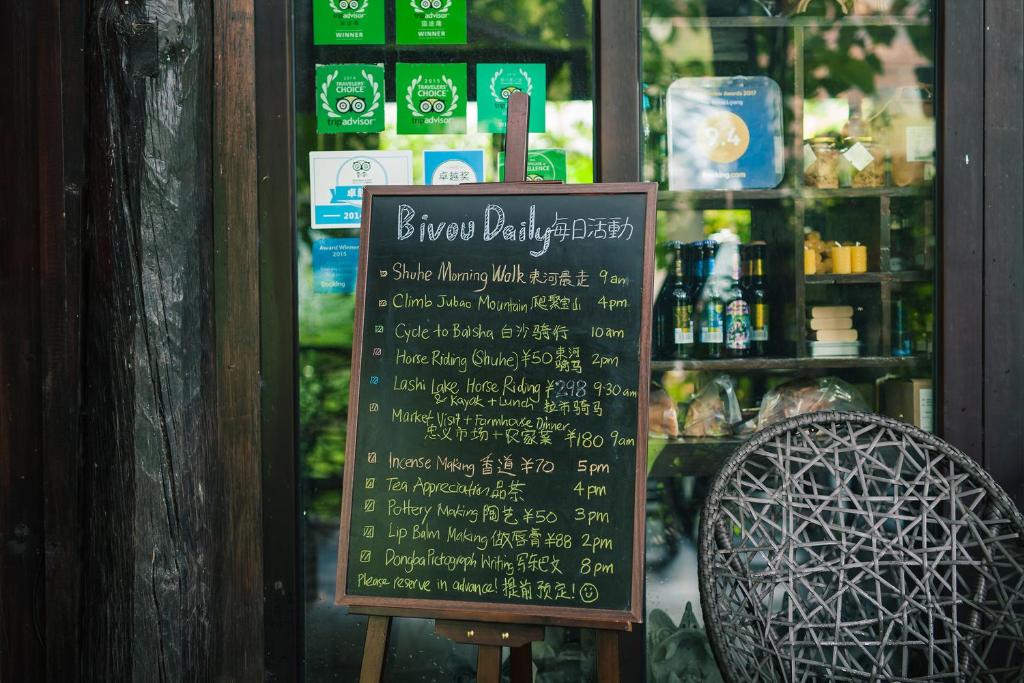 WINNER
WINNER
2014
TRAVELERS' CHOICE
tripadvisor
2015
TRAVELERS' CHOICE
tripadvisor
卓越奖
Award Winner
2015
Booking
Awards 2017
9.4
Booking.com
Bivou Daily 每日活動
Shuhe Morning Walk 束河晨走 9am
Climb Jubao Mountain 爬聚宝山 4pm
Cycle to Baisha 白沙骑行 10am
Horse Riding (Shuhe) ¥50 束河骑马 2pm
Lashi Lake Horse Riding ¥298 9:30am
& Kayak + Lunch 拉市骑马
Market Visit + Farmhouse Dinner
忠义市场+农家菜 ¥180 9am
Incense Making 香道 ¥70 5pm
Tea Appreciation 品茶 4pm
Pottery Making 陶艺 ¥50 3pm
Lip Balm Making 做唇膏 ¥88 2pm
Dongba Pictograph Writing 写东巴文 8pm
Please reserve in advance! 提前预定!